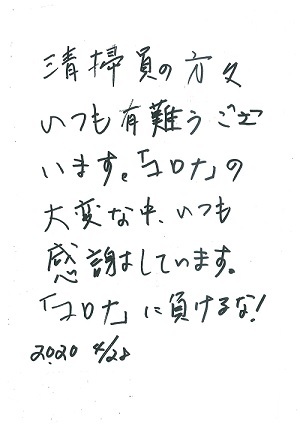 清掃員の方々
いつも有難うござ
います。「コロナ」の
大変な中、いつも
感謝しています。
「コロナ」に負けるな!
2020 4/28